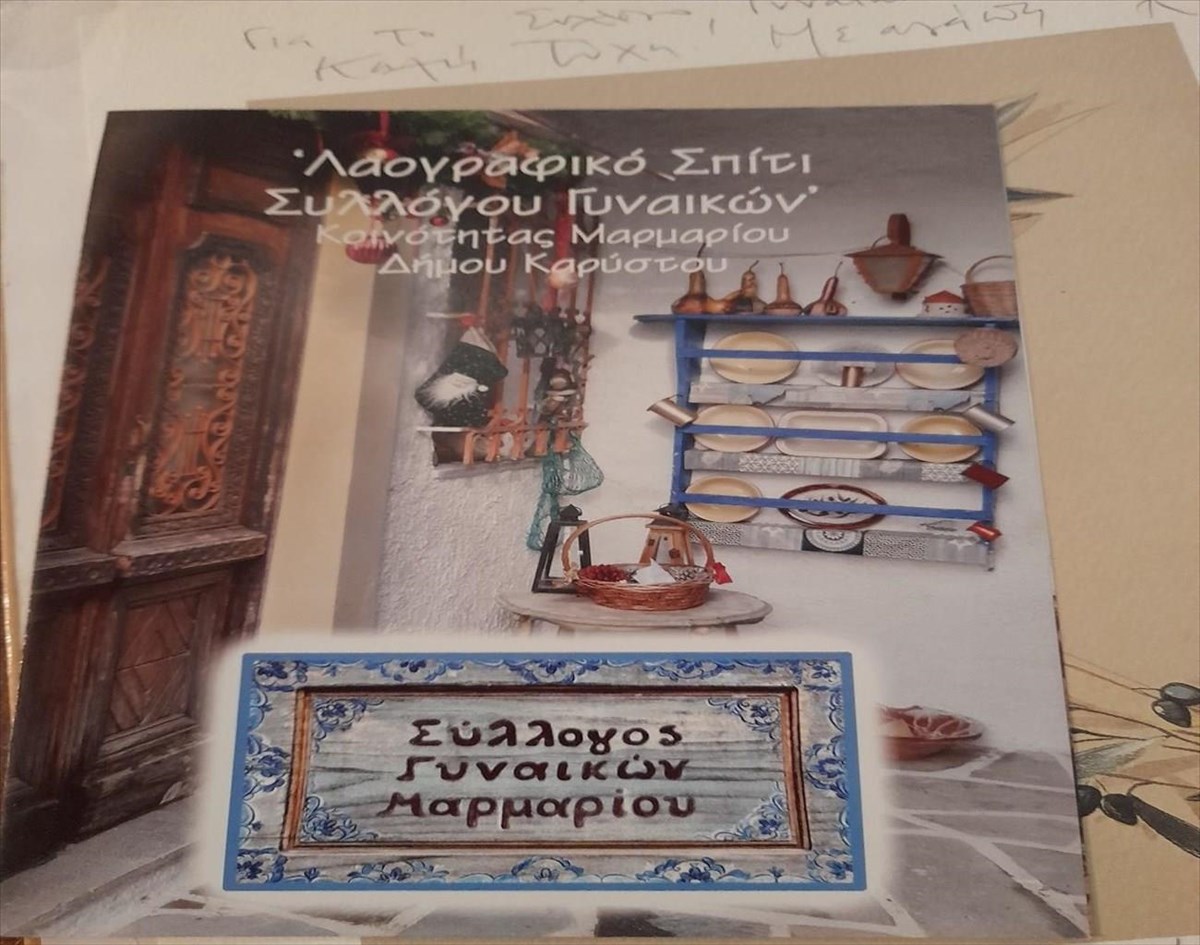 Για το Συλλογο, Γυναικ
Καλή Τύχη Με αγάπη
'Λαογραφικό Σπίτι
Συλλόγου Γυναικών'
Κοινότητας Μαρμαρίου
Δήμου Καρύστου
Σύλλογος
Γυναικών
Μαρμαρίου